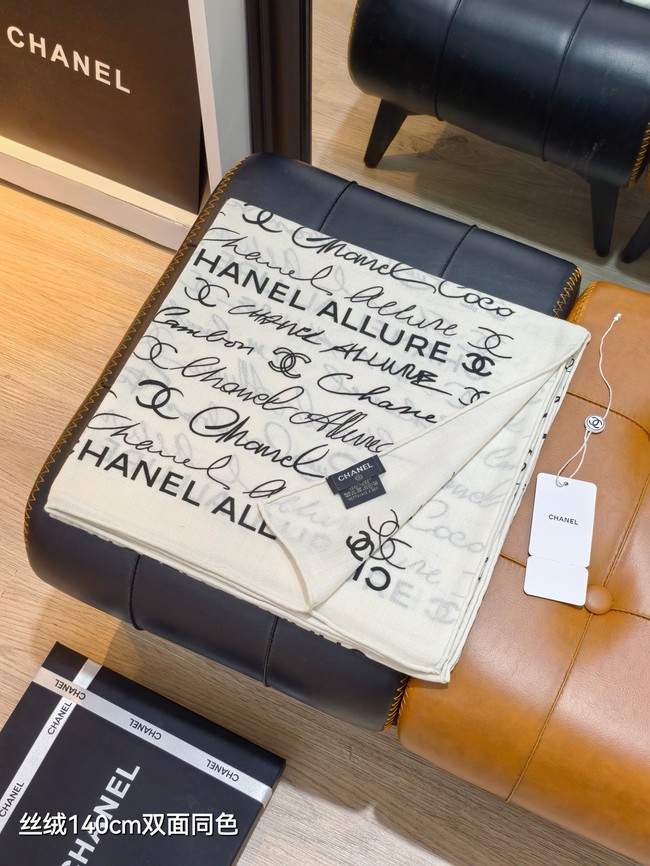 CHANEL
Chanel Coco
Chanel Allure
HANEL ALLURE
CHANEL ALLURE
Cambon Chane
Chanel Allure
Chanel
Chanel
CHANEL ALL
CHANEL
CHANEL
CHANEL
CHANEL
CHANEL
CHANEL
CHANEL
丝绒140cm双面同色